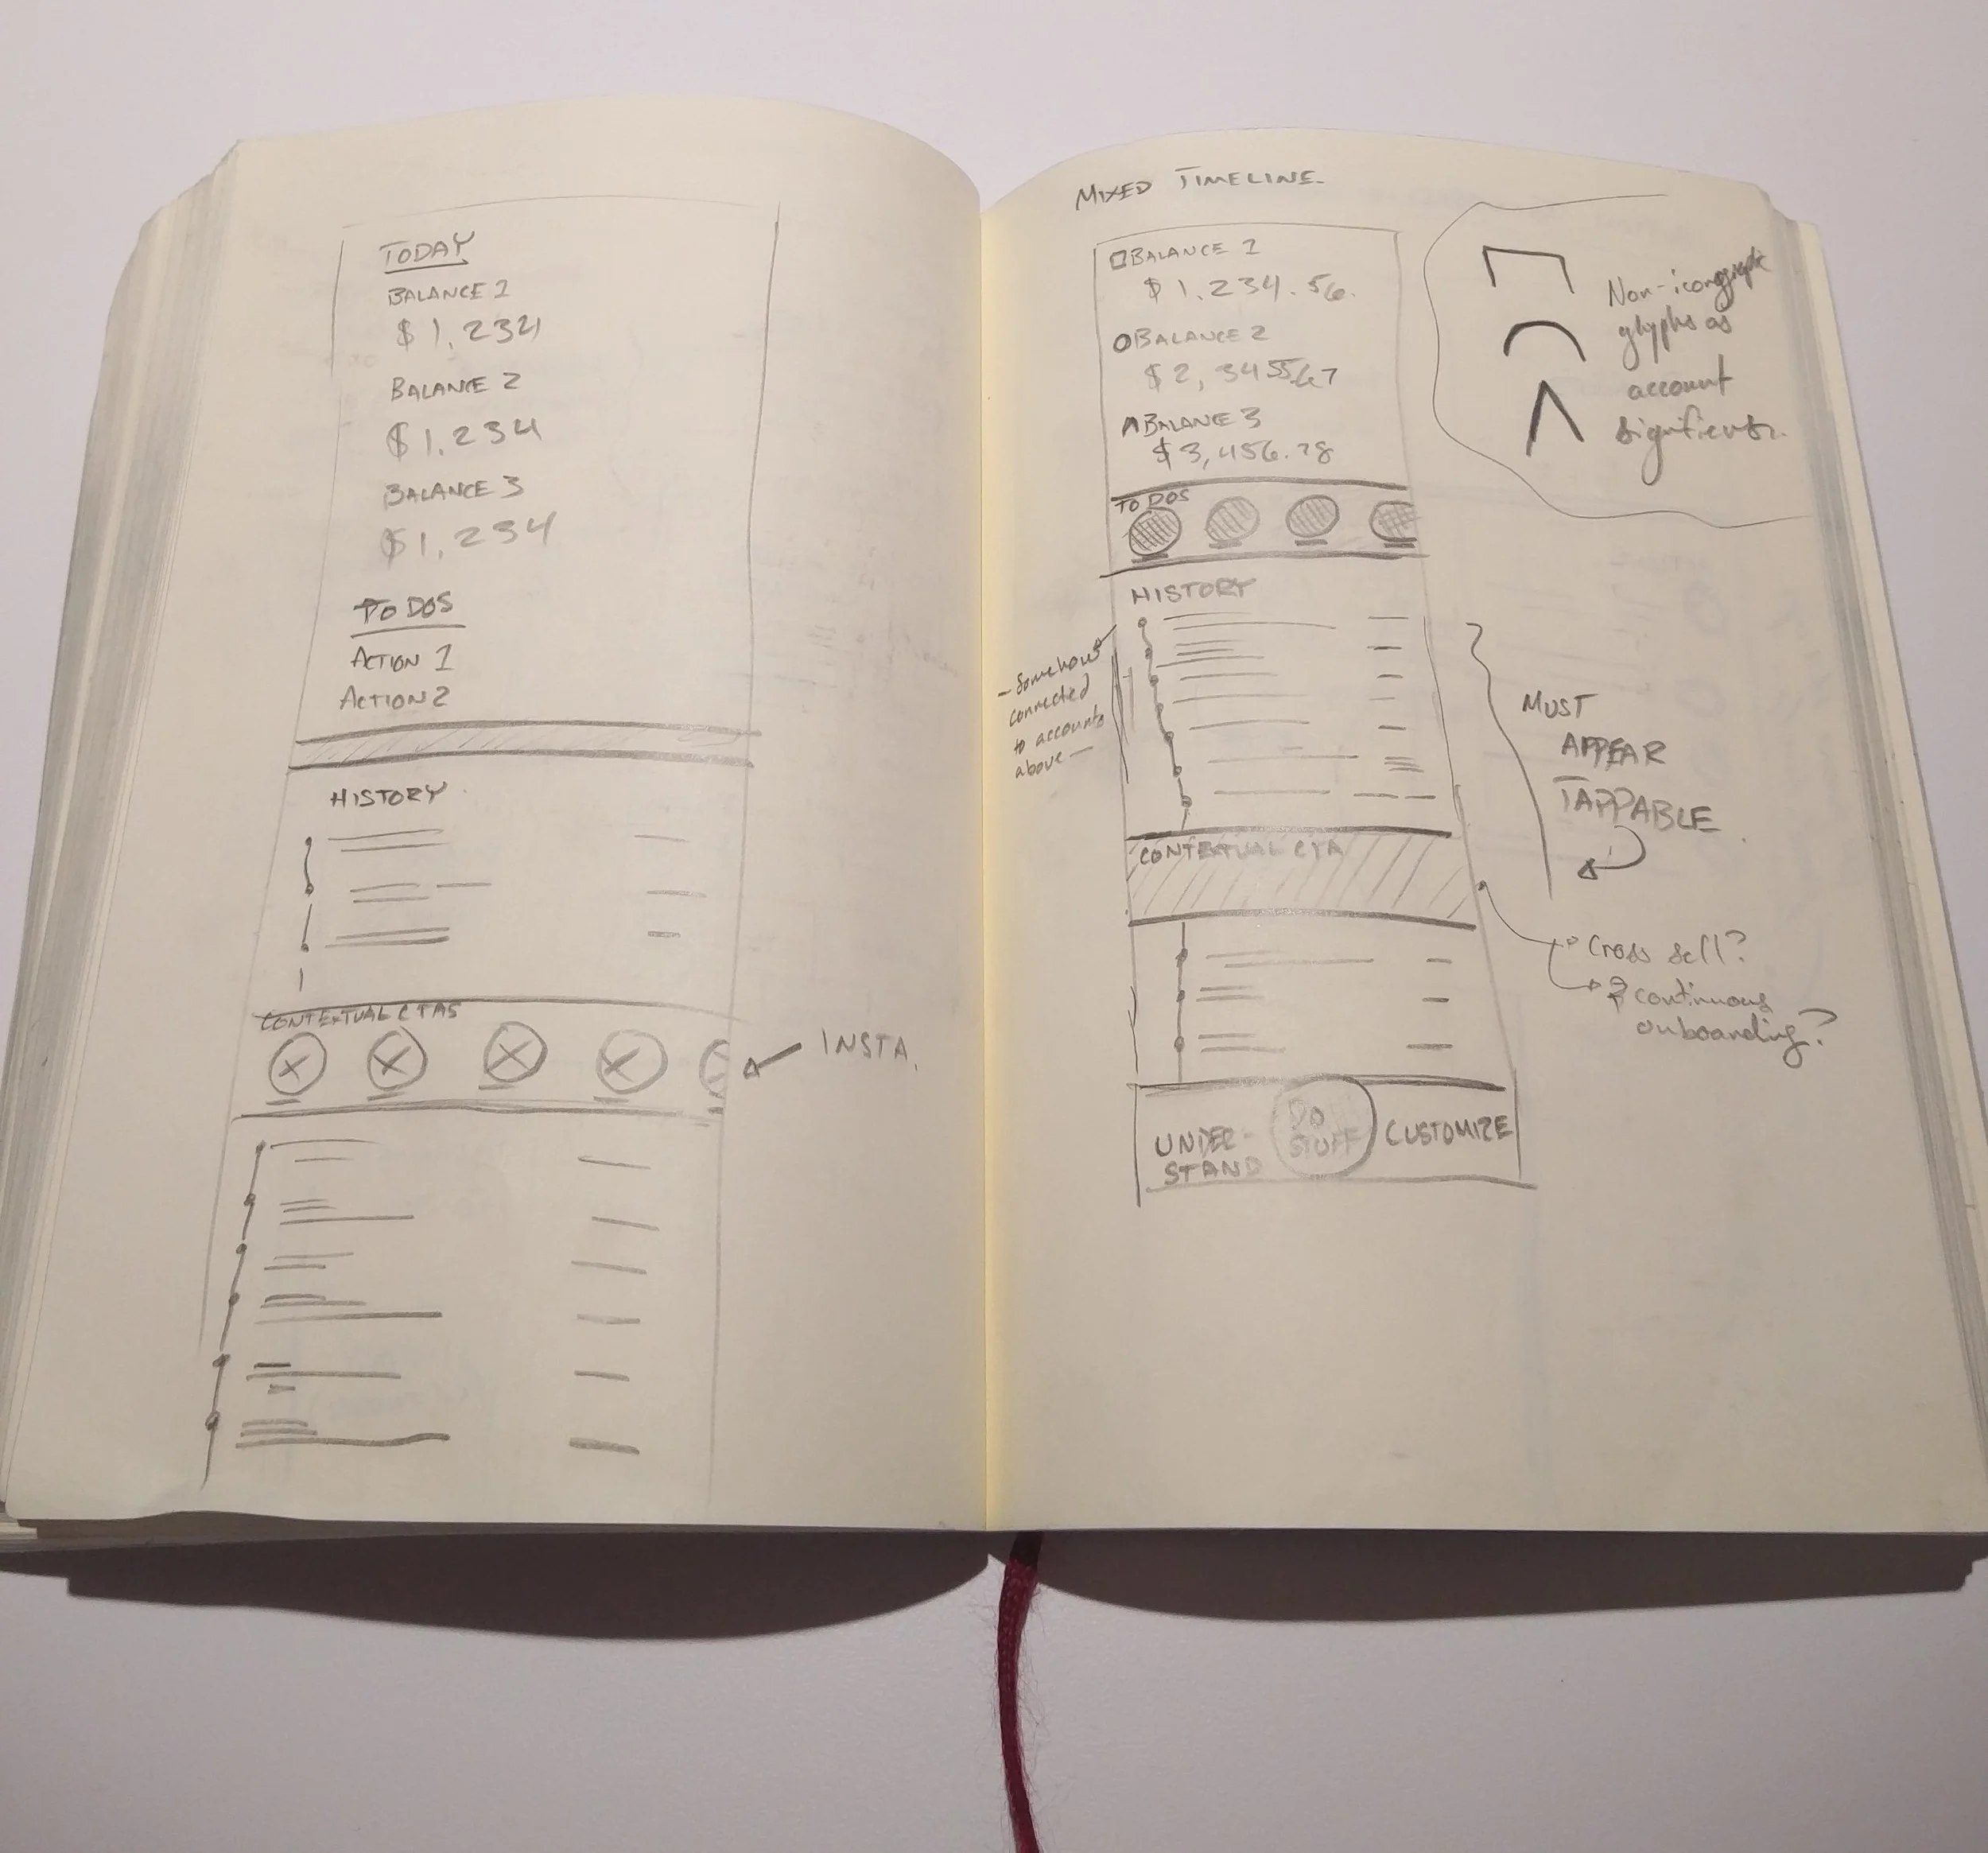 TODAY
BALANCE 1
$1,234
BALANCE 2
$1,234
BALANCE 3
$1,234
TO DOS
ACTION 1
ACTION 2
HISTORY
CONTEXTUAL CTAS
INSTA.
MIXED TIMELINE
BALANCE 1
$1,234.56
BALANCE 2
BALANCE 3
$3,456.78
TO DOS
HISTORY
- Somehow
connected
to accounts
above -
CONTEXTUAL CTA
UNDER-
STAND
DO
STUFF
CUSTOMIZE
Non-iconographic
glyphs as
account
MUST
APPEAR
TAPPABLE
Cross sell?
continuous
onboarding?